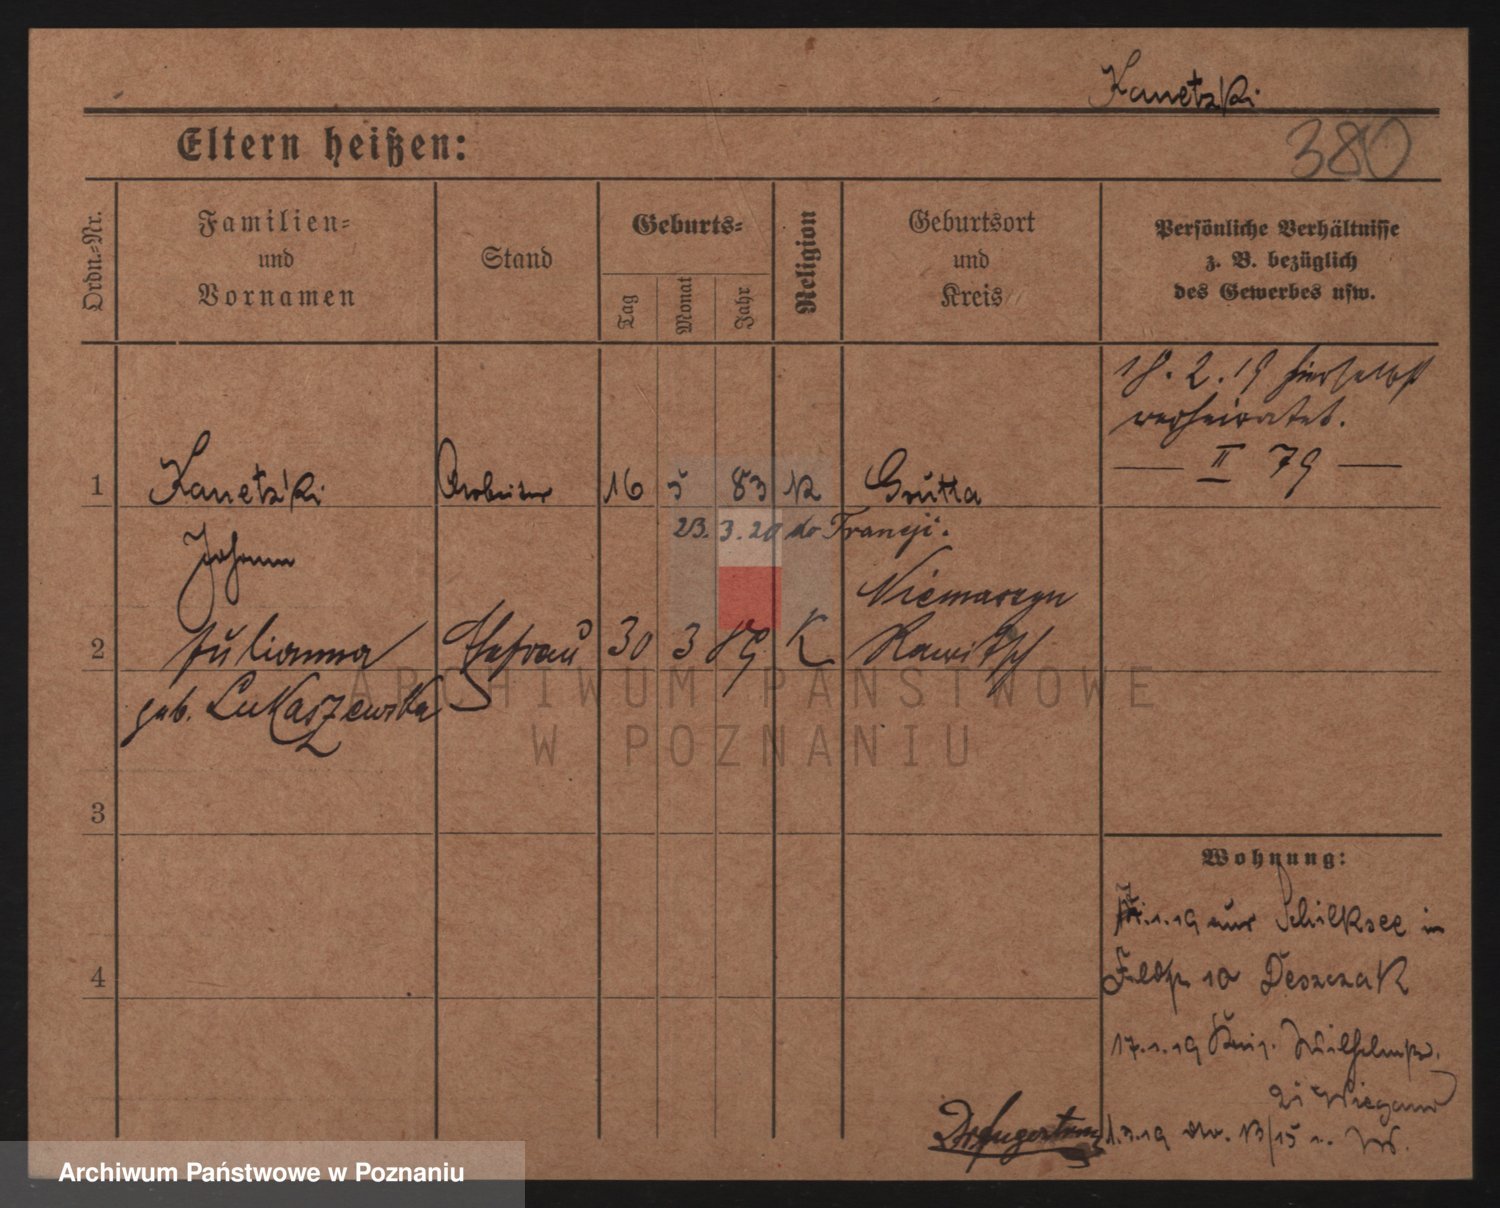 Kanetzki
380
Eltern heißen:
Ordn.-Nr.
Familien-
und
Vornamen
Stand
Geburts-
Tag
Monat
Jahr
Religion
Geburtsort
und
Kreis
Persönliche Verhältnisse
z. B. bezüglich
des Gewerbes usw.
18.2.19 hierselbst
verheiratet.
— II 79 —
1 Kanetzki Arbeiter 16 5 83 K Grutta
23.3.20 do Francji.
Johann
Niemarzyn
2 Julianna Ehefrau 30 3 89 K Rawitsch
geb. Lukaszewska
ARCHIWUM PAŃSTWOWE
W POZNANIU
3
Wohnung:
1.19 aus Schilksee in
10 Deszczak
4
17.1.19 Wilhelmstr.
2i Wiegand
1.3.19 13/15
Archiwum Państwowe w Poznaniu